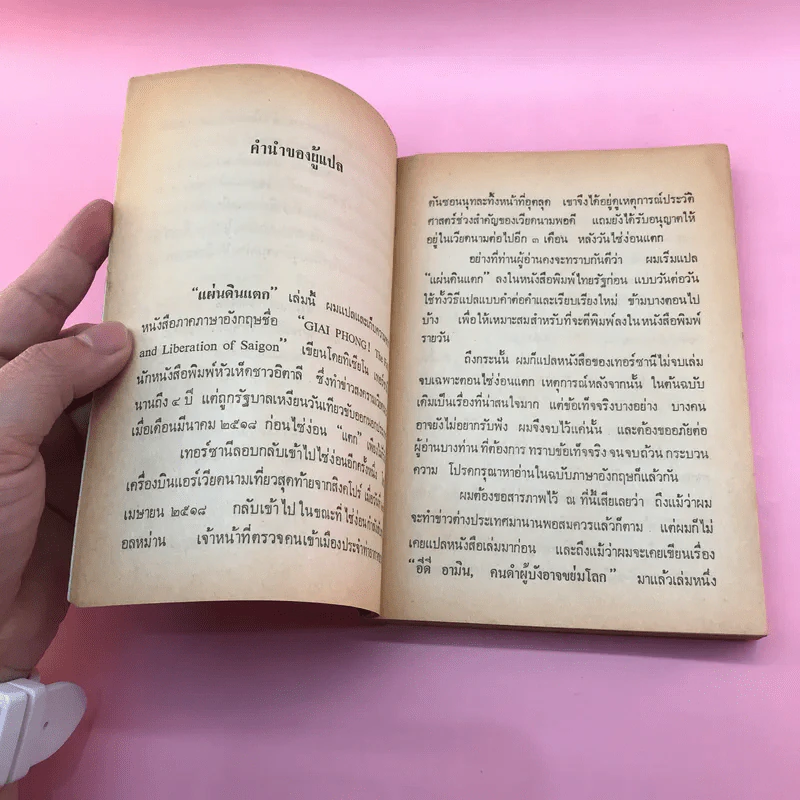 คำนำของผู้แปล
"แผ่นดินแตก" เล่มนี้ ผมแปลและเก็บความ
หนังสือภาคภาษาอังกฤษชื่อ "GIAI PHONG! The
and Liberation of Saigon" เขียนโดยทิเซียโน
นักหนังสือพิมพ์หัวเห็ดชาวอิตาลี ซึ่งทำข่าวสงคราม
นานถึง ๔ ปี แต่ถูกรัฐบาลเหงียนวันเทียวขับออก
เมื่อเดือนมีนาคม ๒๕๑๘ ก่อนไซ่ง่อน "แตก"
เทอร์ซานีลอบกลับเข้าไปไซ่ง่อนอีกครั้งหนึ่ง
เครื่องบินแอร์เวียดนามเที่ยวสุดท้ายจากสิงคโปร์
เมษายน ๒๕๑๘ กลับเข้าไปในขณะที่ไซ่ง่อน
อลหม่าน เจ้าหน้าที่ตรวจคนเข้าเมืองประจำท่า
ตันซอนนุทละทิ้งหน้าที่อุตลุด เขาจึงได้อยู่ดูเหตุการณ์ประวัติ
ศาสตร์ช่วงสำคัญของเวียดนามพอดี แถมยังได้รับอนุญาตให้
อยู่ในเวียดนามต่อไปอีก ๓ เดือน หลังวันไซ่ง่อนแตก
อย่างที่ท่านผู้อ่านคงจะทราบกันดีว่า ผมเริ่มแปล
"แผ่นดินแตก" ลงในหนังสือพิมพ์ไทยรัฐก่อน แบบวันต่อวัน
ใช้ทั้งวิธีแปลแบบคำต่อคำและเรียบเรียงใหม่ ข้ามบางตอนไป
บ้าง เพื่อให้เหมาะสมสำหรับที่จะตีพิมพ์ลงในหนังสือพิมพ์
รายวัน
ถึงกระนั้น ผมก็แปลหนังสือของเทอร์ซานีไม่จบเล่ม
จบเฉพาะตอนไซ่ง่อนแตก เหตุการณ์หลังจากนั้น ในต้นฉบับ
เดิมเป็นเรื่องที่น่าสนใจมาก แต่ข้อเท็จจริงบางอย่าง บางคน
อาจยังไม่อยากรับฟัง ผมจึงจบไว้แค่นั้น และต้องขออภัยต่อ
ผู้อ่านบางท่าน ที่ต้องการ ทราบข้อเท็จจริง จนจบถ้วน กระบวน
ความ โปรดกรุณาหาอ่านในฉบับภาษาอังกฤษก็แล้วกัน
ผมต้องขอสารภาพไว้ ณ ที่นี้เสียเลยว่า ถึงแม้ว่าผม
จะทำข่าวต่างประเทศมานานพอสมควรแล้วก็ตาม แต่ผมก็ไม่
เคยแปลหนังสือเล่มมาก่อน และถึงแม้ว่าผมจะเคยเขียนเรื่อง
"อีดี้ อามิน, คนดำผู้บังอาจขย่มโลก" มาแล้วเล่มหนึ่ง